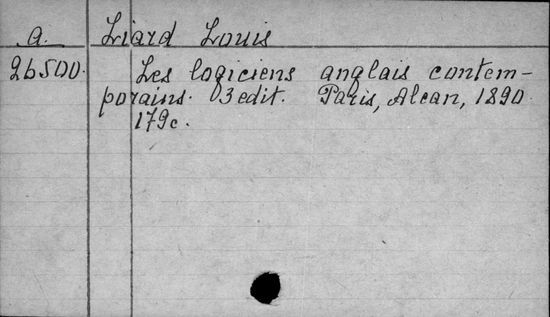 a. Liard Louis
26500. Les logiciens anglais contem-
porains. 3 edit. Paris, Alcan, 1890
179c.